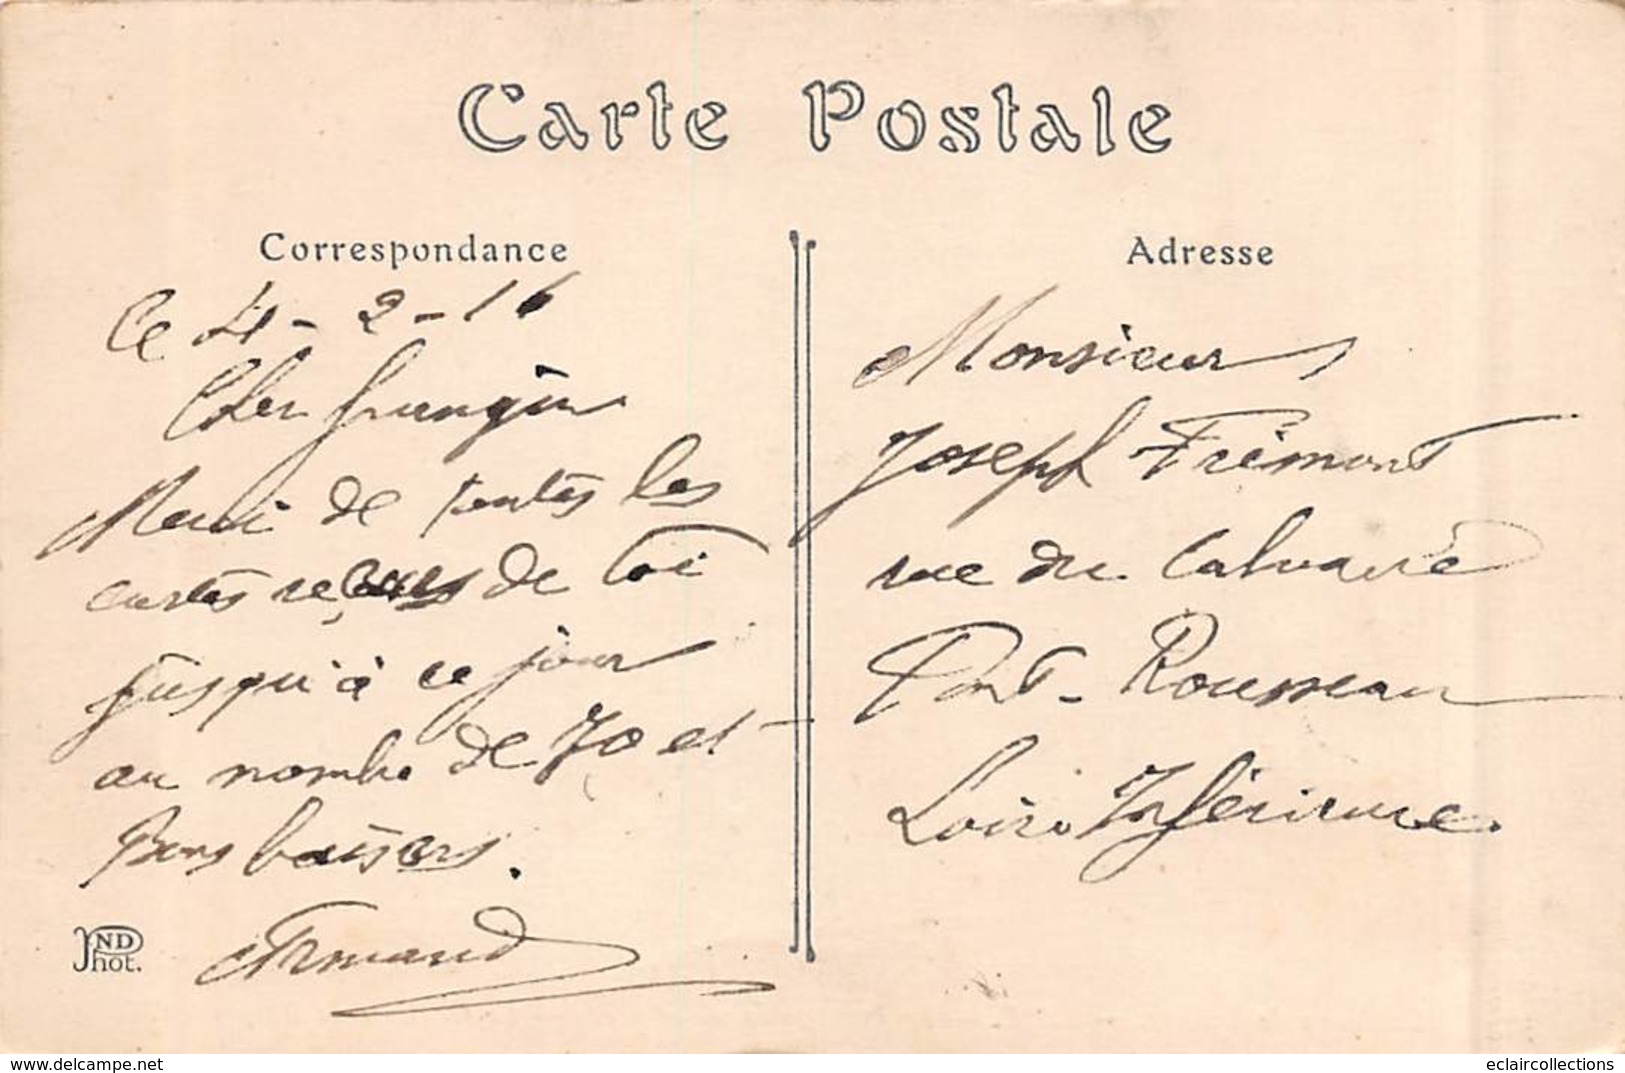 Carte Postale
Correspondance
Ce 4-2-16
Cher frangin
Merci de toutes les
cartes reçues de toi
jusqu'à ce jour
au nombre de 70 et
Bons baisers.
Armand
ND
Phot.
Adresse
Monsieur
Joseph Frémont
rue du Calvaire
Pont-Rousseau
Loire Inférieure.
www.delcampe.net
eclaircollections